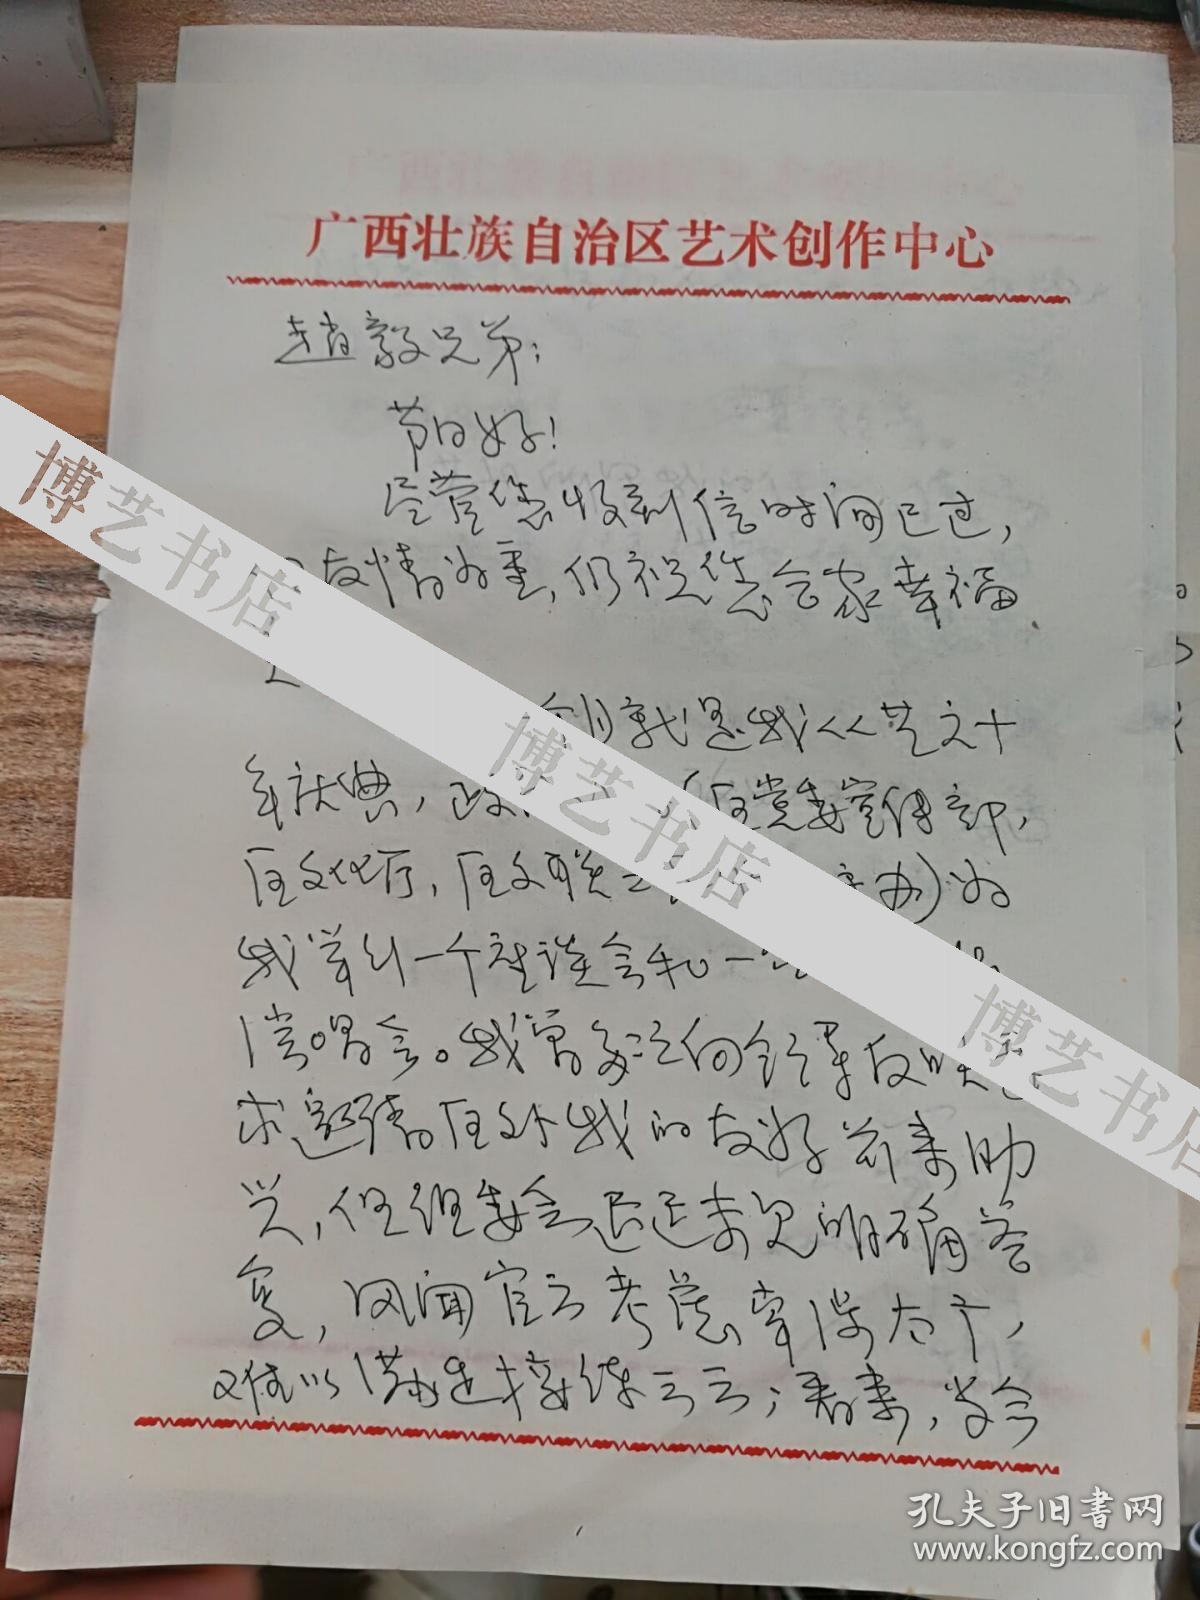 广西壮族自治区艺术创作中心
赵毅兄弟：
节日好！
尽管您收到信时间已过，
友情为重，仍祝您合家幸福
就是我从艺六十
年庆典，政 区党委宣传部，
区文化厅，区文联 办)为
我举行一个座谈会和一
演唱会。我曾多次向 反映
求邀请区外我的友好前来助
兴，但组委会迟迟未见明确答
复，风闻官方考虑牵涉太广，
难以 接待云云；看来，当今
博艺书店
博艺书店
博艺书店
孔夫子旧书网
www.kongfz.com